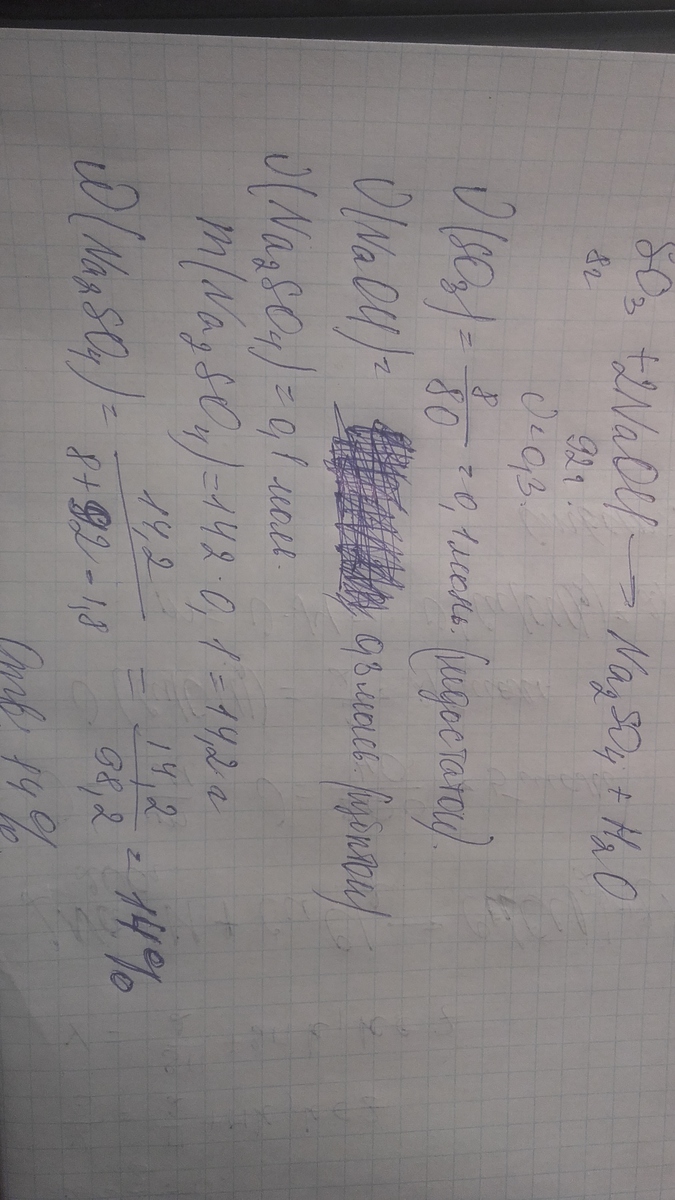 SO₃ + 2NaOH → Na₂SO₄ + H₂O
8г 92г.
ν=0,3.
ν(SO₃) = 8/80 = 0,1 моль. (недостаток).
ν(NaOH) = 0,3 моль. (избыток)
ν(Na₂SO₄) = 0,1 моль.
m(Na₂SO₄) = 142 · 0,1 = 14,2 г
ω(Na₂SO₄) = 14,2/8+92-1,8 = 14,2/98,2 = 14%
Отв 14%.